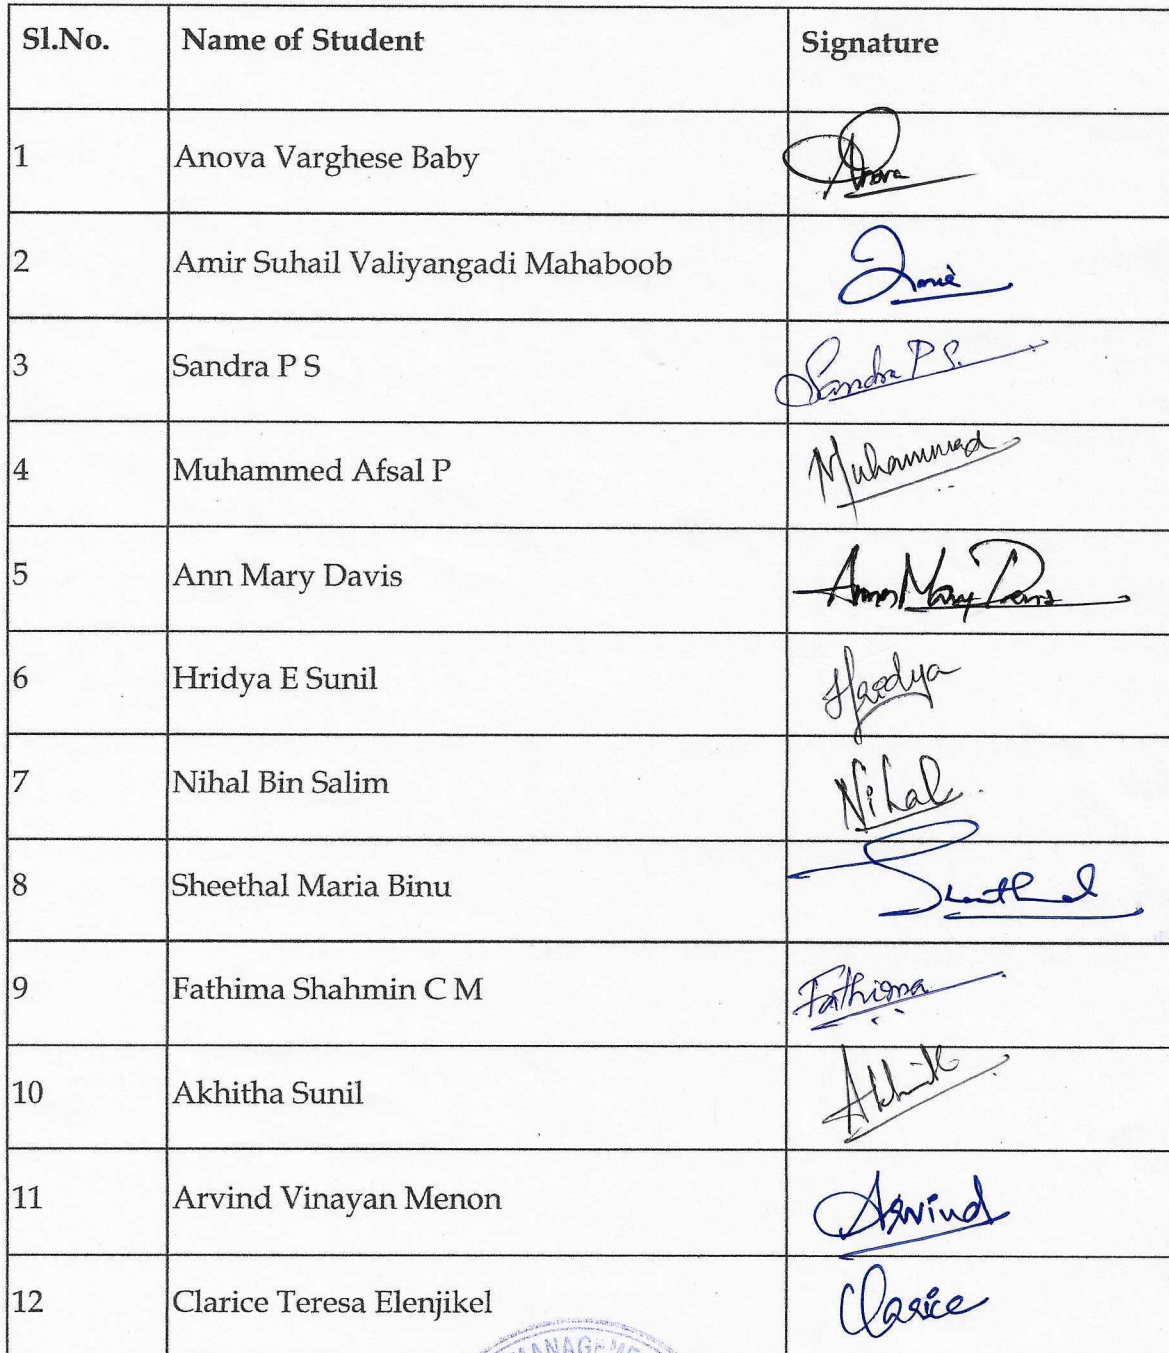 Sl.No. Name of Student Signature
1 Anova Varghese Baby Anova
2 Amir Suhail Valiyangadi Mahaboob
3 Sandra P S Sandra P S.
4 Muhammed Afsal P Muhammed
5 Ann Mary Davis Ann Mary Davis
6 Hridya E Sunil Hridya
7 Nihal Bin Salim Nihal
8 Sheethal Maria Binu Sheethal
9 Fathima Shahmin C M Fathima
10 Akhitha Sunil
11 Arvind Vinayan Menon Arvind
12 Clarice Teresa Elenjikel Clarice